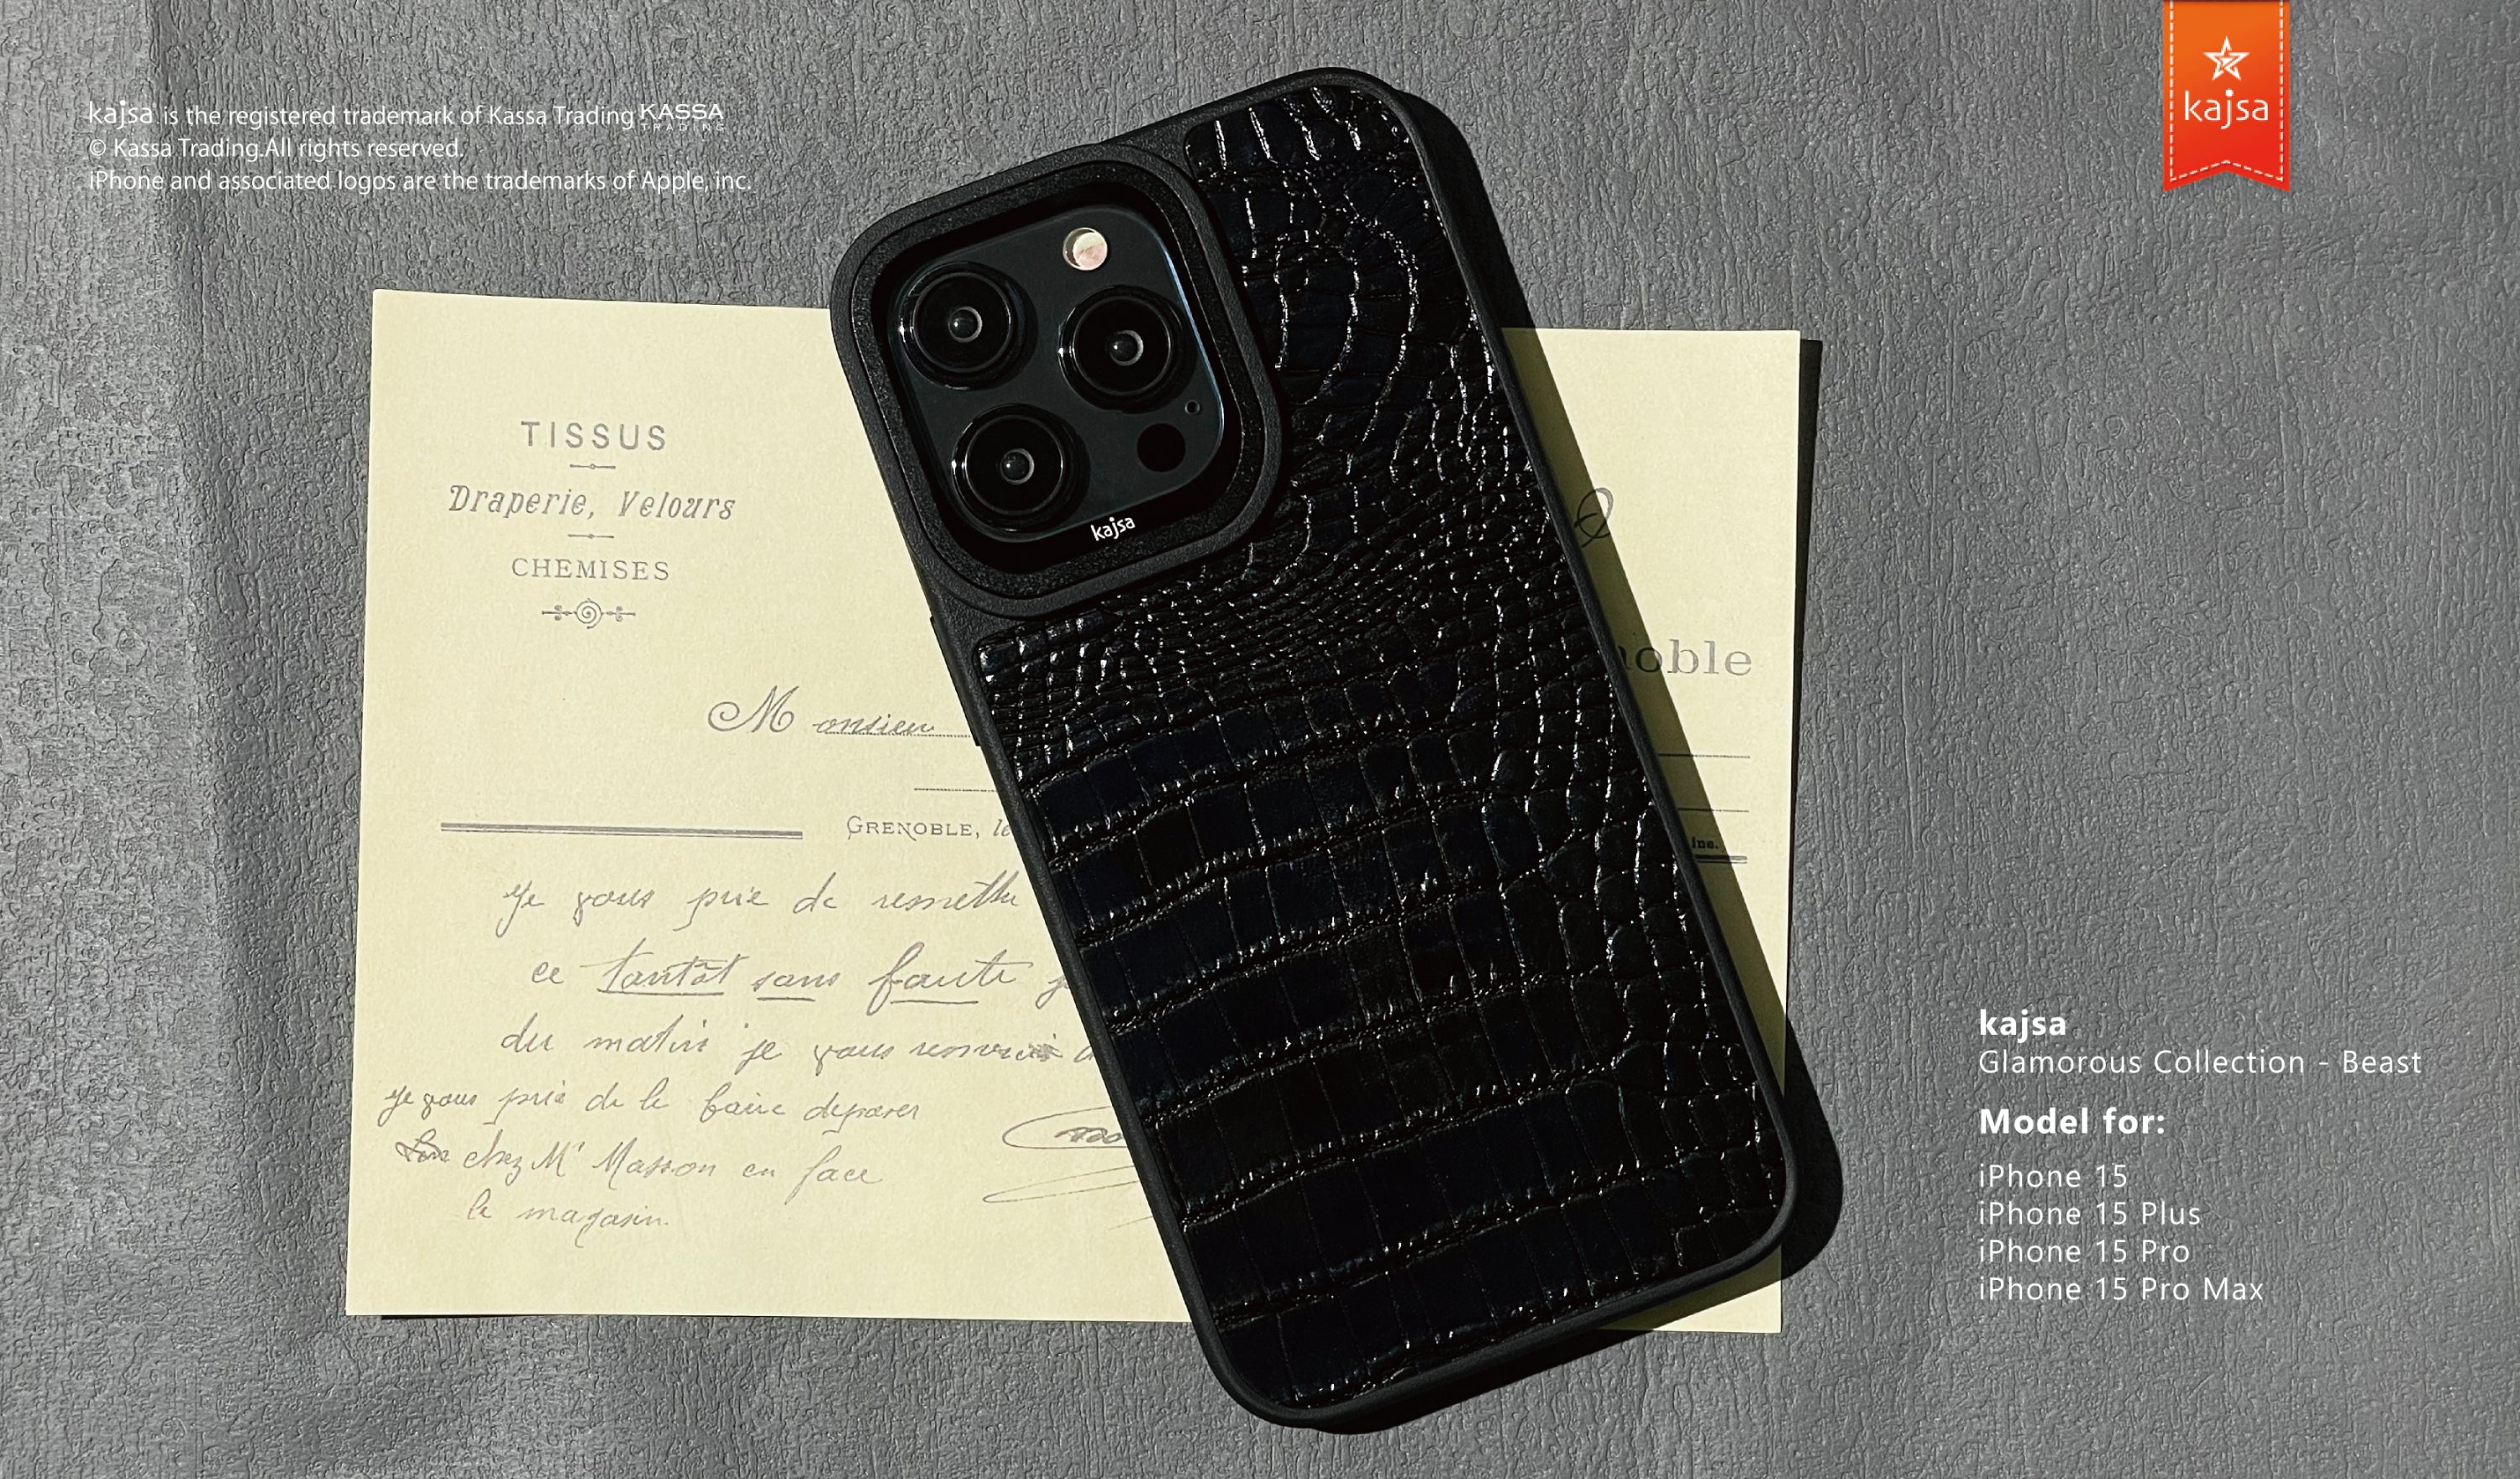 kajsa is the registered trademark of Kassa Trading KASSA TRADING
© Kassa Trading.All rights reserved.
iPhone and associated logos are the trademarks of Apple, inc.
kajsa
TISSUS
Draperie, Velours
CHEMISES
Monsieur
GRENOBLE, le
Je vous prie de remettre
ce tantôt sans faute
du matin je vous
Je vous prie de le faire deposer
chez Mr Masson en face
le magasin.
kajsa
noble
Inc.
kajsa
Glamorous Collection - Beast
Model for:
iPhone 15
iPhone 15 Plus
iPhone 15 Pro
iPhone 15 Pro Max